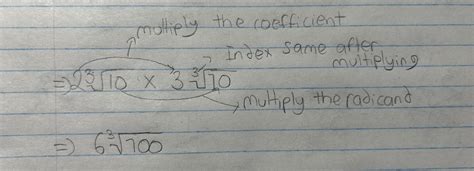 multiply the coefficient
Index same after
multiplying
⇒ 2∛10 × 3∛10
multiply the radicand
⇒ 6∛100